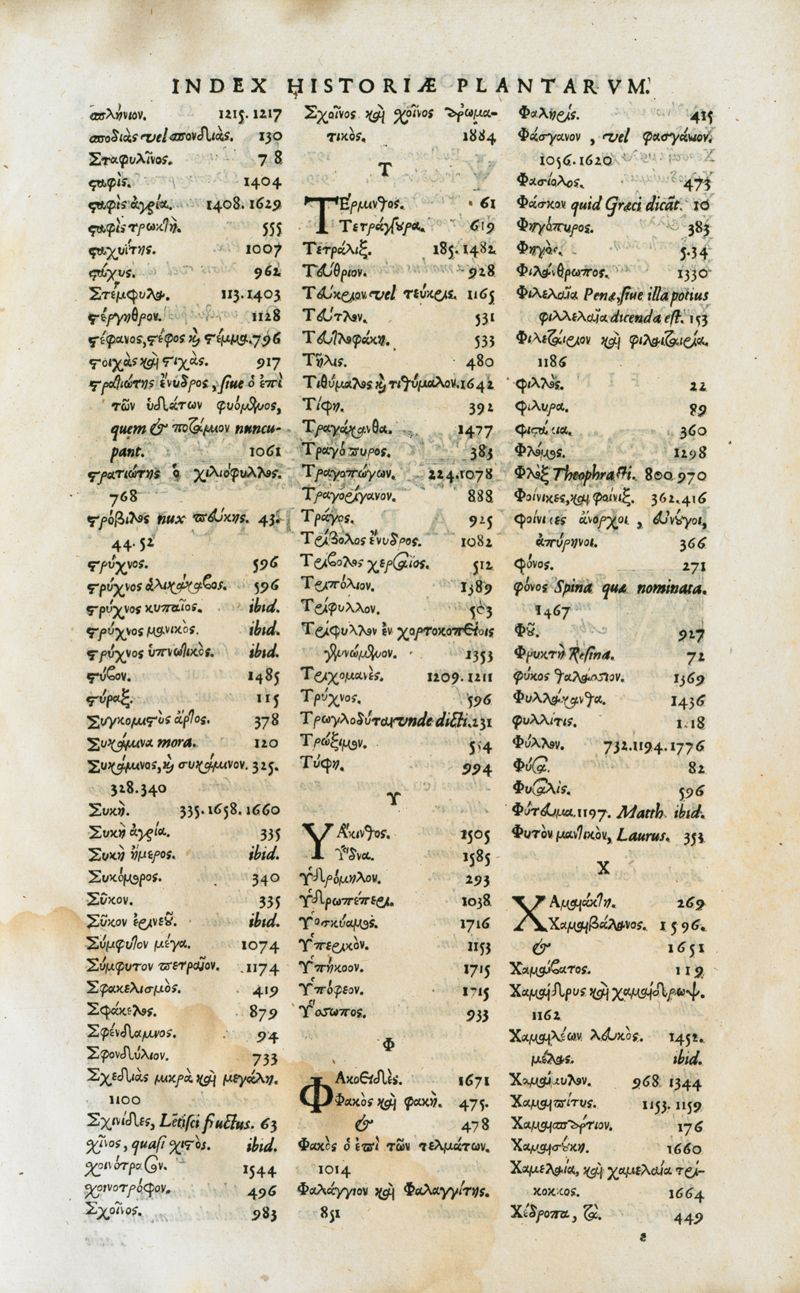 INDEX HISTORIÆ PLANTARVM.
σπλήνιον. 1215.1217
σποδιὰς vel σπονδιὰς. 130
Σταφυλῖνος. 7 8
σταφὶς. 1404
σταφὶς ἀγρία. 1408.1629
σταφὶς τρωκτὴ. 555
σταχυίτης. 1007
στάχυς. 962
Στέμφυλα. 113.1403
στέργηθρον. 1128
στέφανος, στέφος καὶ στέμμα. 796
στοιχὰς καὶ στιχὰς. 917
στρατιώτης ἔνυδρος, siue ὁ ἐπὶ
τῶν ὑδάτων φυόμενος,
quem & ποτάμιον nuncu-
pant. 1061
στρατιώτης ὁ χιλιόφυλλος.
768
στρόβιλος nux πεύκης. 43.
44.52
στρύχνος. 596
στρύχνος ἁλικάκαβος. 596
στρύχνος κηπαῖος. ibid.
στρύχνος μανικὸς. ibid.
στρύχνος ὑπνωτικὸς. ibid.
στύβον. 1485
στύραξ. 115
Συγκομιστὸς ἄρτος. 378
Συκάμινα mora. 120
Συκάμινος, καὶ συκάμινον. 325.
328.340
Συκῆ. 335.1658.1660
Συκῆ ἀγρία. 335
Συκῆ ἥμερος. ibid.
Συκόμορος. 340
Σῦκον. 335
Σῦκον ἐρινεοῦ. ibid.
Σύμφυτον μέγα. 1074
Σύμφυτον πετραῖον. 1174
Σφακελισμὸς. 419
Σφάκελος. 879
Σφένδαμνος. 94
Σφονδύλιον. 733
Σχεδιὰς μικρὰ καὶ μεγάλη.
1100
Σχινίδες, Lētisci fructus. 63
χῖνος, quasi χιστὸς. ibid.
χοινότροφον. 496
Σχοῖνος. 983
Σχοῖνος καὶ χοῖνος ἀρωμα-
τικὸς. 1884
Τ
ΤΕρμινθος. 61
Τετράγγουρα. 619
Τετράλιξ. 185.1482
Τεύθριον. 928
Τεύκριον vel τεύκρις. 1165
Τεῦτλον. 531
Τευτλοφάκη. 533
Τῆλις. 480
Τιθύμαλος καὶ τιθύμαλον. 1642
Τίφη. 392
Τραγάκανθα. 1477
Τραγόπυρος. 383
Τραγοπώγων. 224.1078
Τραγορίγανον. 888
Τράγος. 925
Τρίβολος ἔνυδρος. 1082
Τρίβολος χερσαῖος. 512
Τριπόλιον. 1389
Τρίφυλλον. 503
Τρίφυλλον ἐν χορτοκοπίοις
γεννώμενον. 1353
Τριχομανὲς. 1209.1211
Τρύχνος. 596
Τρωγλοδύται unde dicti. 231
Τρώξιμον. 514
Τύφη. 994
Υ
ΥΑκινθος. 1505
Ὕδνα. 1585
Ὑδρόμηλον. 293
Ὑδρωπέπερι. 1038
Ὑοσκύαμος. 1716
Ὑπερικὸν. 1153
Ὑπήκοον. 1715
Ὑπόφεον. 1715
Ὕσσωπος. 933
Φ
ΦΑκοειδὲς. 1671
Φακὸς καὶ φακῆ. 475.
& 478
Φακὸς ὁ ἐπὶ τῶν τελμάτων.
1014
Φαλάγγιον καὶ Φαλαγγίτης.
851
Φαληρὶς. 415
Φάσγανον, vel φασγάνιον.
1056.1620
Φασίολος. 473
Φάσκον quid Græci dicāt. 10
Φηγόπυρος. 383
Φηγὸς. 5.34
Φιλάνθρωπος. 1330
Φιλελαῖα Penæ, siue illa potius
φιλλελαῖα dicenda est. 153
1186
φιλλὸς. 22
φιλυρα. 89
φιστάκια. 360
Φλόμος. 1298
Φλὸξ Theophrasti. 800 970
Φοίνικες, καὶ φοίνιξ. 362.416
φοίνικες ἄνορχοι, εὐνοῦχοι,
ἀπύρηνοι. 366
φόνος. 271
φόνος Spina quæ nominata.
1467
Φοῦ. 927
Φρυκτὴ Resina. 72
φῦκος θαλάσσιον. 1369
Φυλλάκανθα. 1436
φυλλίτις. 1218
Φύλλον. 732.1194.1776
Φυσαλὶς. 596
Φύτευμα. 1197. Matth ibid.
Φυτὸν μαντικὸν, Laurus. 353
Χ
ΧΑμαιάκτη. 269
Χαμαιβάλανος. 1596.
& 1651
Χαμαίβατος. 119
Χαμαίδρυς καὶ χαμαίδρωψ.
1162
Χαμαιλέων λευκὸς. 1452.
μέλας. ibid.
Χαμαίμηλον. 968 1344
Χαμαίπιτυς. 1153.1159
Χαμαισπάρτιον. 176
Χαμαισύκη. 1660
Χαμελαία, καὶ χαμελαία τρί-
κοκκος. 1664
Χέδροπα, τὰ. 449